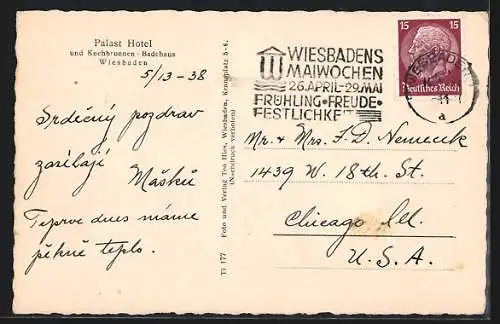 Palast Hotel
und Kochbrunnen - Badehaus
Wiesbaden
5/13-38
Srdečný pozdrav
zasílají
Mašků
Teprve dnes máme
pěkné teplo.
Ti 177 Foto und Verlag Teo Hies, Wiesbaden, Kranzplatz 5-6.
(Nachdruck verboten)
WIESBADENS
MAIWOCHEN
26.APRIL-29.MAI
FRÜHLING•FREUDE•
FESTLICHKEIT
15 15
Deutsches Reich
WIESBADEN
a
Mr. & Mrs. F. D. Nemecek
1439 W. 18th St.
Chicago Ill.
U.S.A.